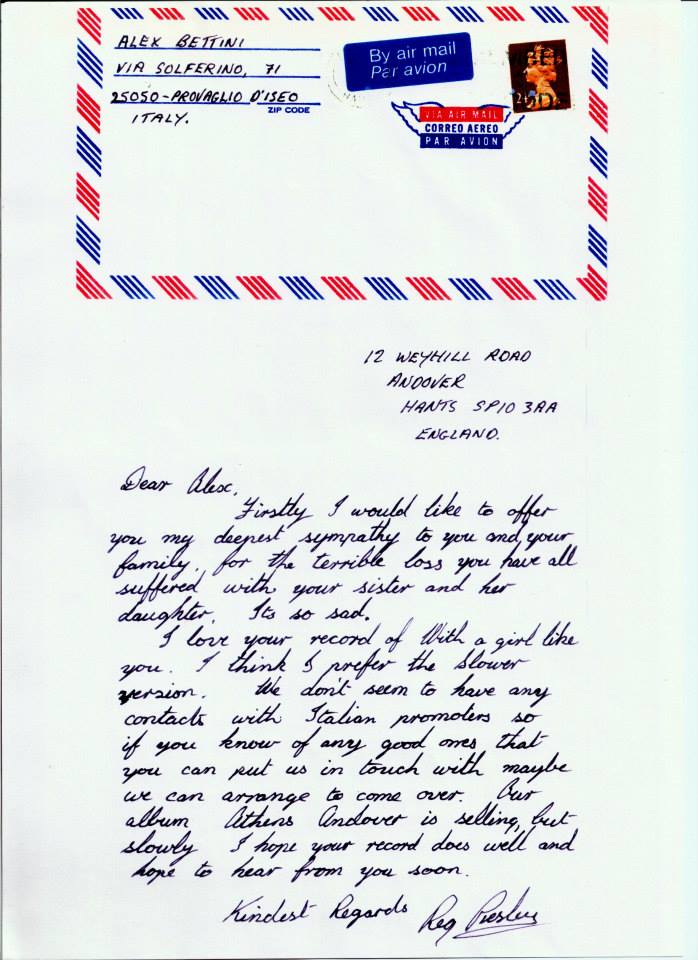 ALEX BETTINI
VIA SOLFERINO, 71
25050-PROVAGLIO D'ISEO
ZIP CODE
ITALY.
By air mail
Par avion
VIA AIR MAIL
CORREO AEREO
PAR AVION
12 WEYHILL ROAD
ANDOVER
HANTS SP10 3AA
ENGLAND.
Dear Alex,
Firstly I would like to offer
you my deepest sympathy to you and your
family, for the terrible loss you have all
suffered with your sister and her
daughter. Its so sad.
I love your record of With a girl like
you. I think I prefer the slower
version. We don't seem to have any
contacts with Italian promoters so
if you know of any good ones that
you can put us in touch with maybe
we can arrange to come over. Our
album Athens Andover is selling, but
slowly I hope your record does well and
hope to hear from you soon.
Kindest Regards
Reg Presley